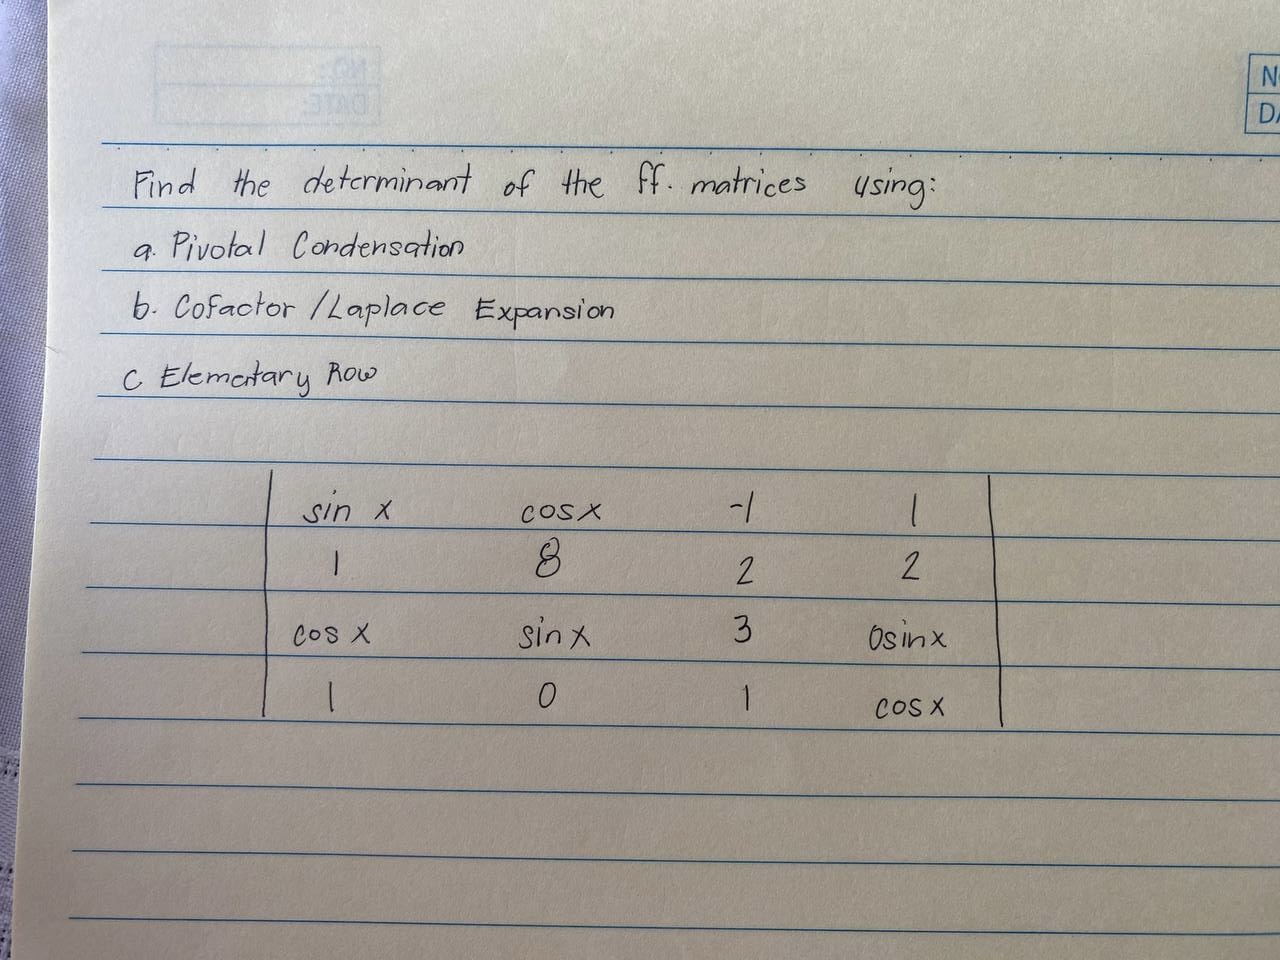 NO:
DATE:
N
DA
Find the determinant of the ff. matrices using:
a. Pivotal Condensation
b. Cofactor /Laplace Expansion
C Elemetary Row
sin x cosx -1 1
1 8 2 2
cos x sinx 3 0sinx
1 0 1 cosx